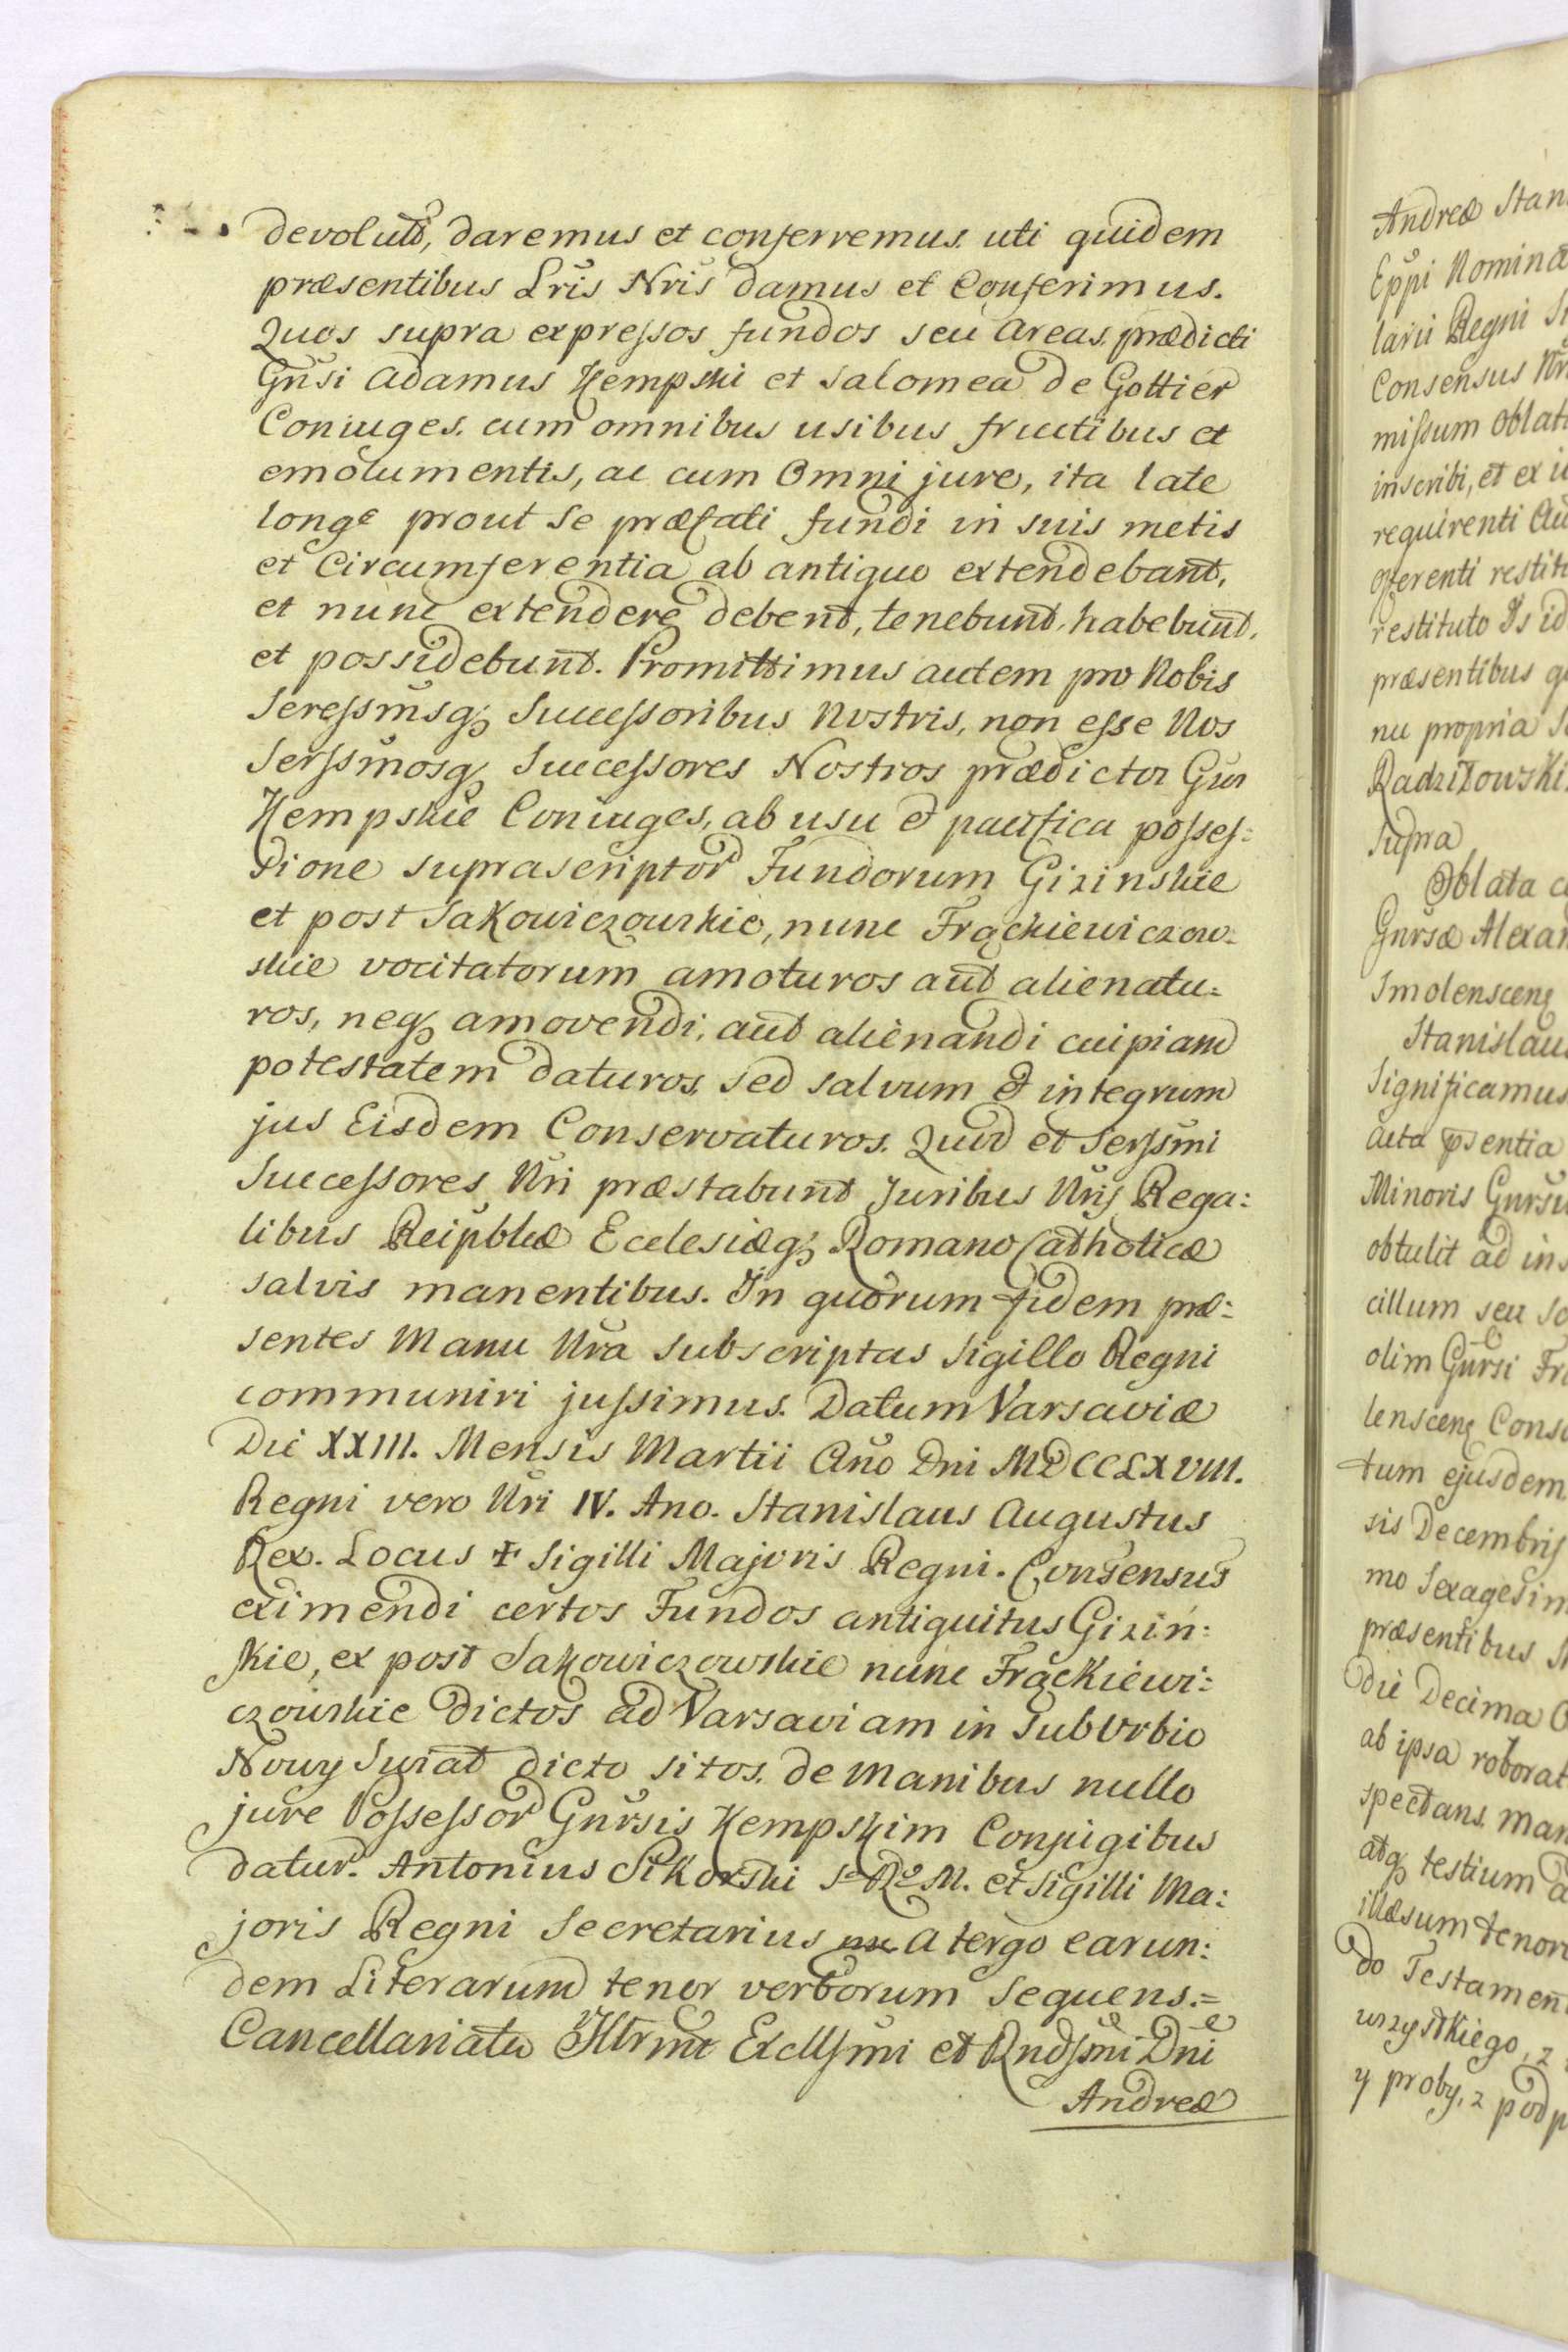 devolutos, daremus et conferremus. uti quidem
præsentibus Lris Nris damus et Conferimus.
Quos supra expressos fundos seu Areas, prædicti
Gnsi Adamus Kempski et Salomea de Gottier
Coniuges. cum omnibus usibus fructibus et
emolumentis, ac cum Omni jure, ita late
longe prout se præfati fundi in suis metis
et Circumferentia ab antiquo extendebant,
et nunc extendere debent, tenebunt, habebunt,
et possidebunt. Promittimus autem pro Nobis
Seressmsq; Successoribus Nostris, non esse Nos
Serssmosq; Successores Nostros prædictor Gnr
Kempskie Coniuges, ab usu et pacifica posses=
sione suprascriptor Fundorum Gizinskie
et post Sakowiczowskie, nunc Frąckiewiczow=
skie vocitatorum amoturos aut alienatu=
ros, neq; amovendi, aut alienandi cuipiam
potestatem daturos, sed salvum et integrum
jus Eisdem Conservaturos. Quod et Serssmi
Successores Nri præstabunt Juribus Nris Rega=
libus Reipblcæ Ecclesiæq; Romano Catholicæ
salvis manentibus. In quorum fidem præ=
sentes Manu Nra subscriptas Sigillo Regni
communiri jussimus. Datum Varsaviæ
Die XXIII. Mensis Martii Ano Dni MDCCLXVIII.
Regni vero Nri IV. Ano. Stanislaus Augustus
Rex. Locus ✝ Sigilli Majoris Regni. Consensus
eximendi certos Fundos antiquitus Giziń=
skie, ex post Sakowiczowskie nunc Frąckiewi=
czowskie dictos ad Varsaviam in SubUrbio
Nowy Swiat dicto sitos, de Manibus nullo
jure Possessor Gnrsis Kempskim Conjugibus
datur. Antonius Sikorski S. R. M. et Sigilli Ma=
joris Regni Secretarius A tergo earun=
dem Literarum tenor verborum sequens.=
Cancellariatu Illrmi Excllsmi et Rndssmi Dni
Andreæ
Andreæ Stan
Eppi Nomina
larii Regni
Consensus
missum Oblat
inscribi, et ex
requirenti
offerenti restit
restituto Is id
præsentibus
nu propria
Radziłowski
supra
Oblata
Gnrsæ Alexan
Smolenscen
Stanislaus
Significamus
acta psentia
Minoris Gnrsu
obtulit ad ins
cillum seu
olim Gnrsi Fr
lenscen Cons
tum ejusdem
sis Decembris
mo Sexagesim
præsentibus
die Decima
ab ipsa roborat
spectans. man
atq; testium
illæsum tenore
do Testamen
wszystkiego, z
y proby, z podp